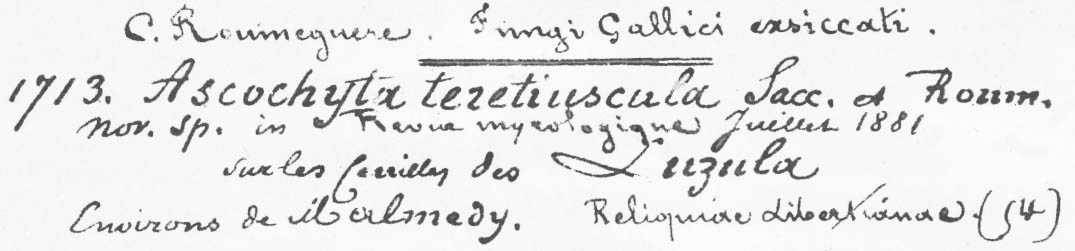 C. Roumeguere. Fungi Gallici exsiccati.
1713. Ascochyta teretiuscula Sacc. et Roum.
nov. sp. in Revue mycologique Juillet 1881
sur les feuilles des Luzula
Environs de Malmedy. Reliquiae Libertianae. (54)